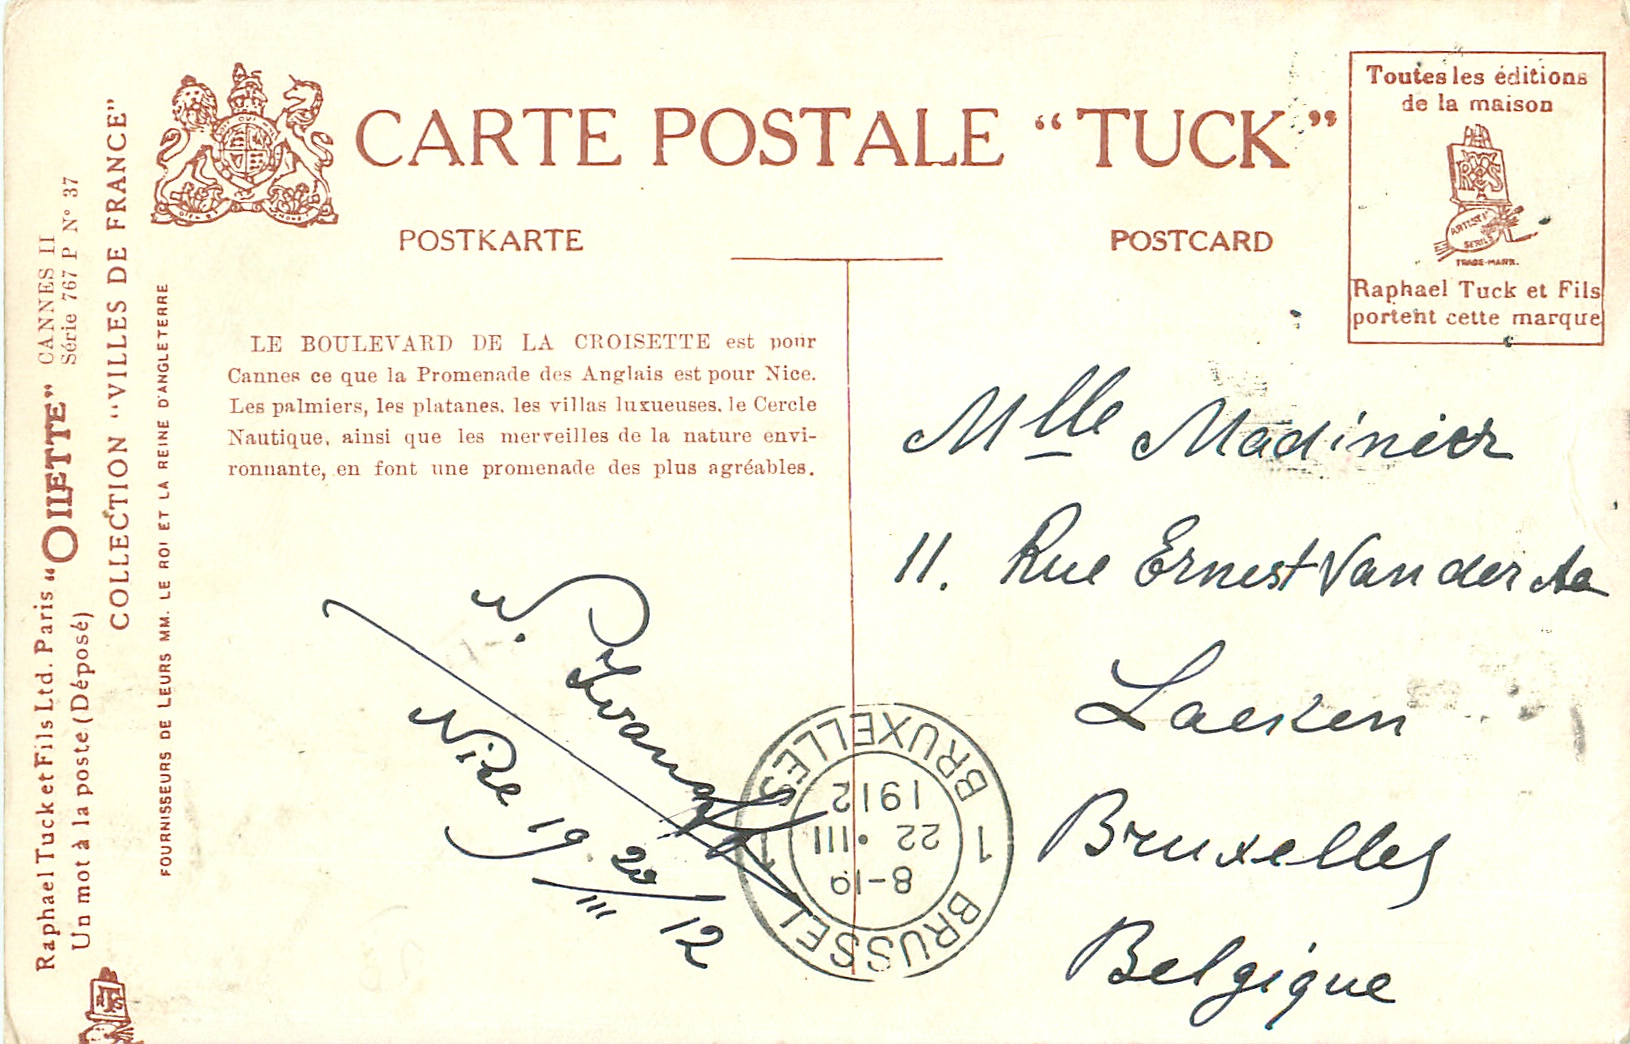 CARTE POSTALE "TUCK"
POSTKARTE
POSTCARD
Toutes les éditions
de la maison
ARTISTIC
SERIES
TRADE-MARK.
Raphael Tuck et Fils
portent cette marque
LE BOULEVARD DE LA CROISETTE est pour
Cannes ce que la Promenade des Anglais est pour Nice.
Les palmiers, les platanes, les villas luxueuses, le Cercle
Nautique, ainsi que les merveilles de la nature envi-
ronnante, en font une promenade des plus agréables.
Mlle Madinier
11. Rue Ernest Van der Aa
Laeken
Bruxelles
Belgique
Nice 19.20/12
III
1 BRUXELLES 1 BRUSSEL
8-19
22 • III
1912
Raphael Tuck et Fils Ltd. Paris "OILETTE" CANNES II
Série 767 P N° 37
Un mot à la poste (Déposé)
COLLECTION "VILLES DE FRANCE"
FOURNISSEURS DE LEURS MM. LE ROI ET LA REINE D'ANGLETERRE